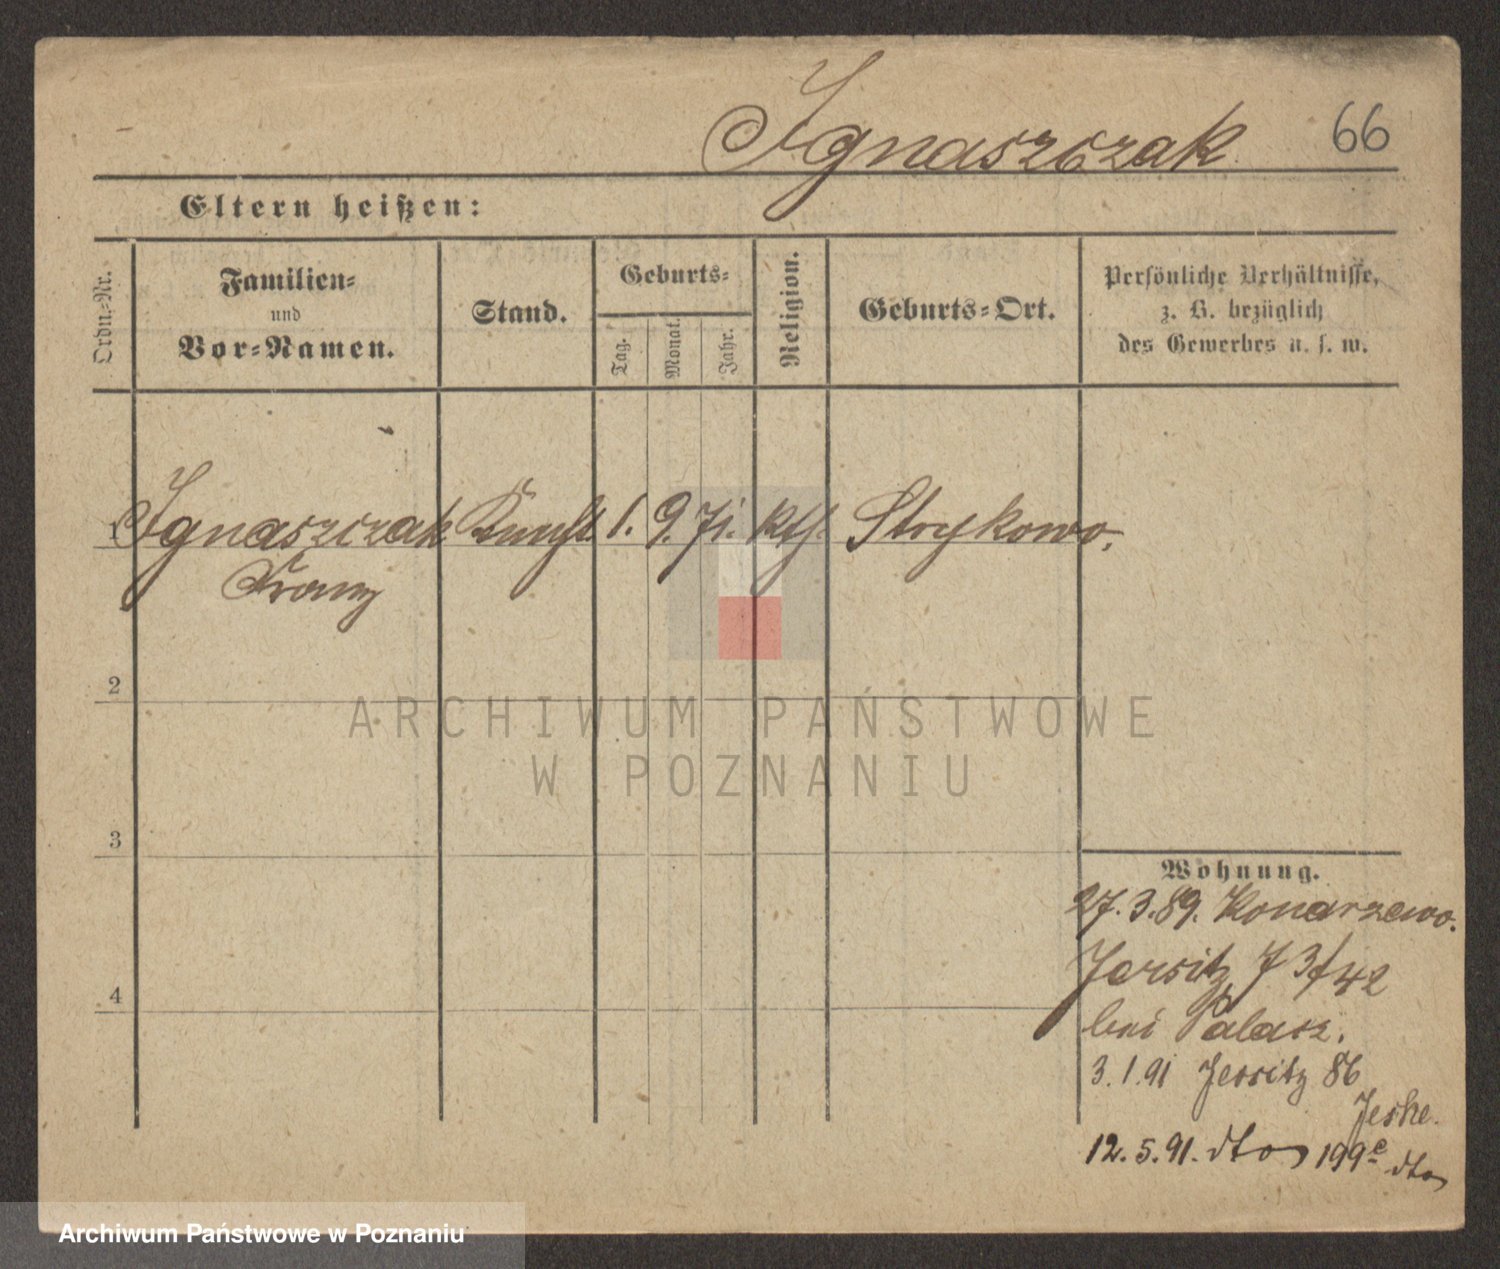 Ignaszczak 66
Eltern heißen:
Ordn.-Nr.
Familien-
und
Vor-Namen.
Stand.
Geburts-
Tag.
Monat.
Jahr.
Religion.
Geburts-Ort.
Persönliche Verhältnisse,
z. B. bezüglich
des Gewerbes u. s. w.
1 Ignaszczak 1. 9. 71. kth. Strykowo.
Franz
2
3
4
Wohnung.
27.3.89. Konarzewo.
Jersitz 73/42
bei Palacz.
3.1.91 Jersitz 86
Jeske.
12.5.91. dto 199c dto
ARCHIWUM PAŃSTWOWE
W POZNANIU
Archiwum Państwowe w Poznaniu